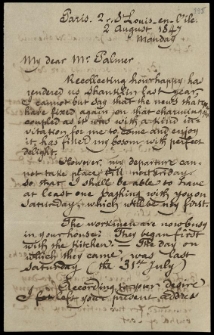 Paris. 2 r. St Louis-en-l'Ile.
2 August 1847
Monday
My dear Mr Palmer
Recollecting how happy has
rendered us Shanklin last year,
I cannot but say that the news that you
have fixed again on that charming
coupled as it was with a kind in-
vitation for me to come and enjoy
it, has filled my bosom with perfect
delight.
However, my departure can-
not take place till next Friday.
So that I shall be able to have
at least one bathing with you on
Saturday, which will be my first.
The workmen are now busy
in your house. They began first
with the kitchen. The day on
which they came was last
Saturday (the 31st July)
According to your desire
I your present address